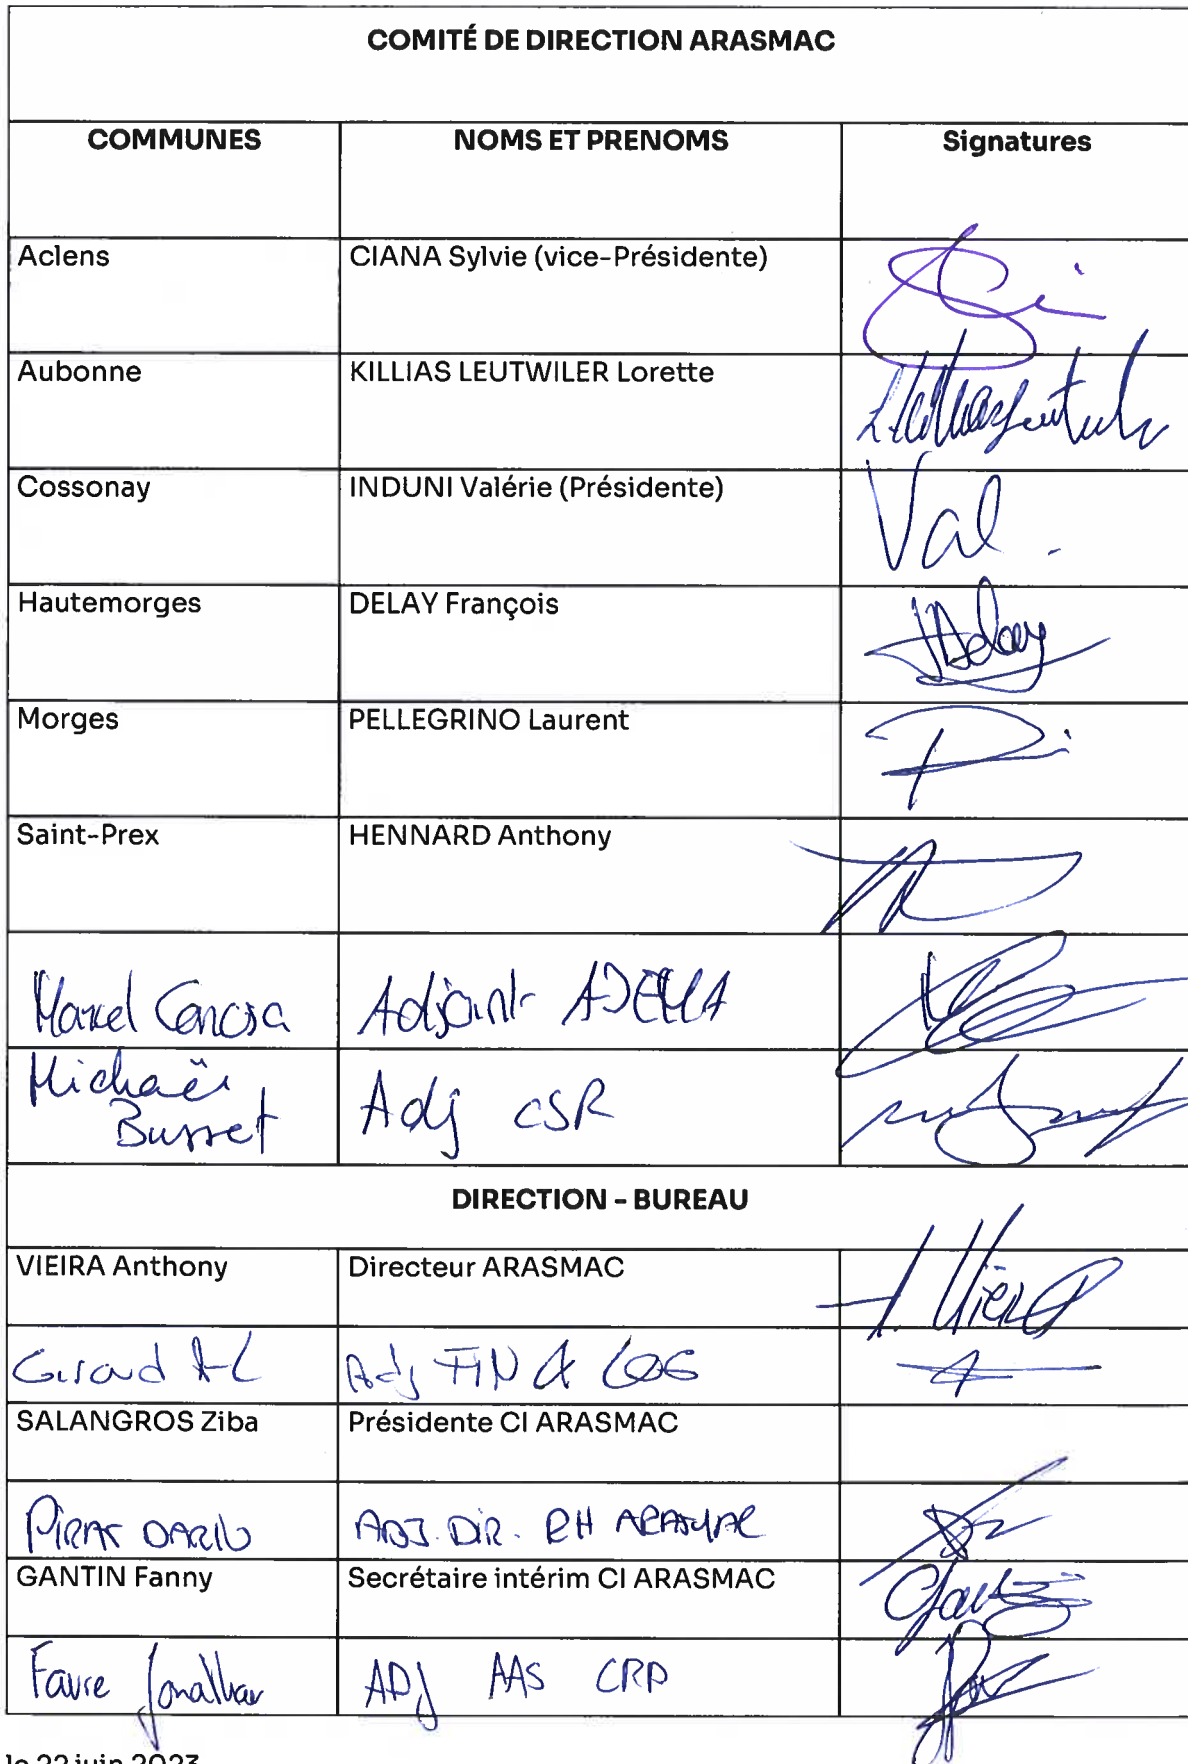 COMITÉ DE DIRECTION ARASMAC
COMMUNES NOMS ET PRENOMS Signatures
Aclens CIANA Sylvie (vice-Présidente)
Aubonne KILLIAS LEUTWILER Lorette
Cossonay INDUNI Valérie (Présidente) Val.
Hautemorges DELAY François Delay
Morges PELLEGRINO Laurent
Saint-Prex HENNARD Anthony
Marcel Adjoint
Michaël
Busset Adj CSR
DIRECTION - BUREAU
VIEIRA Anthony Directeur ARASMAC
Giroud A-L Adj FIN & LOG
SALANGROS Ziba Présidente CI ARASMAC
PIRAS DARIO ADJ. DIR. RH ARASMAC
GANTIN Fanny Secrétaire intérim CI ARASMAC
Favre Jonathan ADJ AAS CRD
le 22 juin 2023